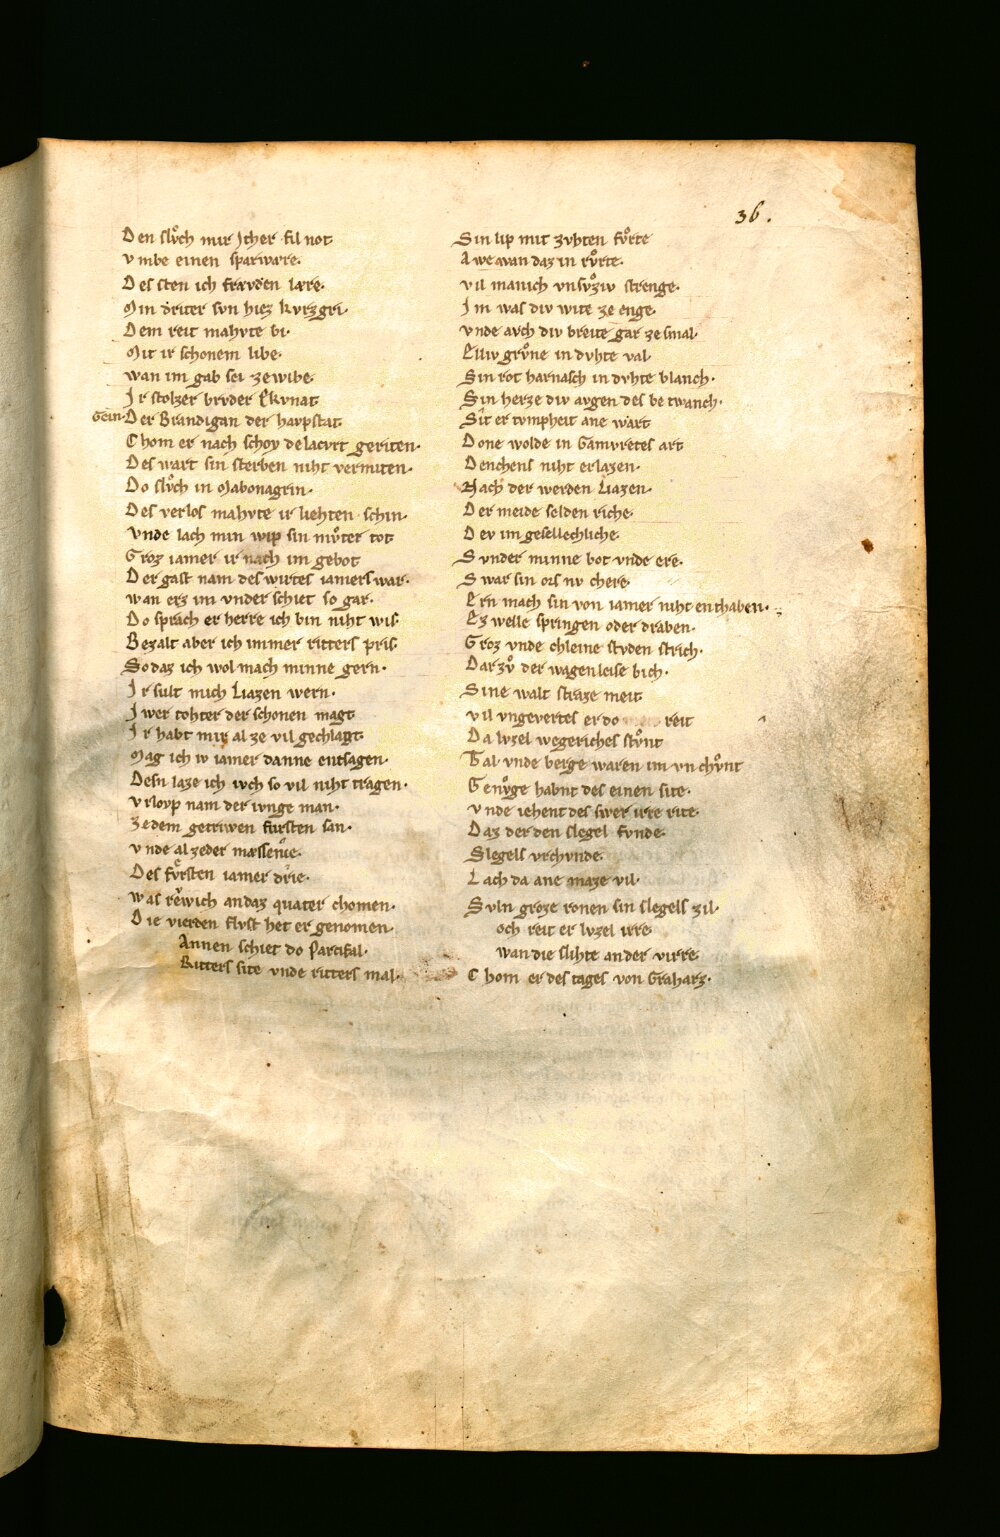 36.
Den slůch mir Jther fil not
vmbe einen sparwære·
Des sten ich frævden lære·
Min driter svn hiez kvrzgri·
Dem reit mahvte bi·
Mit ir schonem libe·
wan im gab sei zewibe·
Jr stolzer brvder Ekvnat
Gein· Der Brandigan der havpstat
Chom er nach schoy delacvrt geriten·
Des wart sin sterben niht vermiten·
Do slůch in Mabonagrin·
Des verlos mahvte ir liehten schin·
vnde lach min wip sin můter tot
Groz iamer ir nach im gebot
Der gast nam des wirtes iamers war·
wan erz im vnder schiet so gar·
Do sprach er herre ich bin niht wis·
Bezalt aber ich immer ritters pris·
Sodaz ich wol mach minne gern·
Jr sult mich Liazen wern·
Jwer tohter der schonen magt
Jr habt mir al ze vil gechlagt
Mag ich iv iamer danne entsagen·
Desn laze ich ivch so vil niht tragen·
vrlovp nam der ivnge man·
zedem getriwen fursten san·
vnde al zeder massenie·
Des fvrsten iamer drie·
was rewich andaz quater chomen·
Die vierden flvst het er genomen·
Annen schiet do Parcifal·
Ritters site vnde ritters mal·
Sin lip mit zvhten fůrte
Awe wan daz in růrte·
vil manich vnsůziv strenge·
Im was div wite ze enge·
vnde avch div breite gar ze smal·
Elliv grůne in dvhte val
Sin rot harnasch in dvhte blanch·
Sin herze div avgen des be twanch·
Sit er tvmpheit ane wart
Done wolde in Gamvretes art
Denchens niht erlazen·
Nach der werden Liazen·
Der meide selden riche·
Dev im gesellechliche·
Svnder minne bot vnde ere·
Swar sin ors nv chere·
Ern mach sin von iamer niht enthaben·
Ez welle springen oder draben·
Groz vnde chleine stvden strich·
Dar zů der wagenleise bich·
Sine walt straze meit
vil vngevertes er do reit
Da lvzel wegeriches stůnt
Tal vnde berge waren im vnchůnt
Genůge habnt des einen site·
vnde iehent des swer irre rite·
Daz der den slegel fvnde·
Slegels vrchvnde·
Lach da ane maze vil·
Svln groze ronen sin slegels zil·
och reit er lvzel irre
wan die slihte an der virre
Chom er des tages von Graharz·